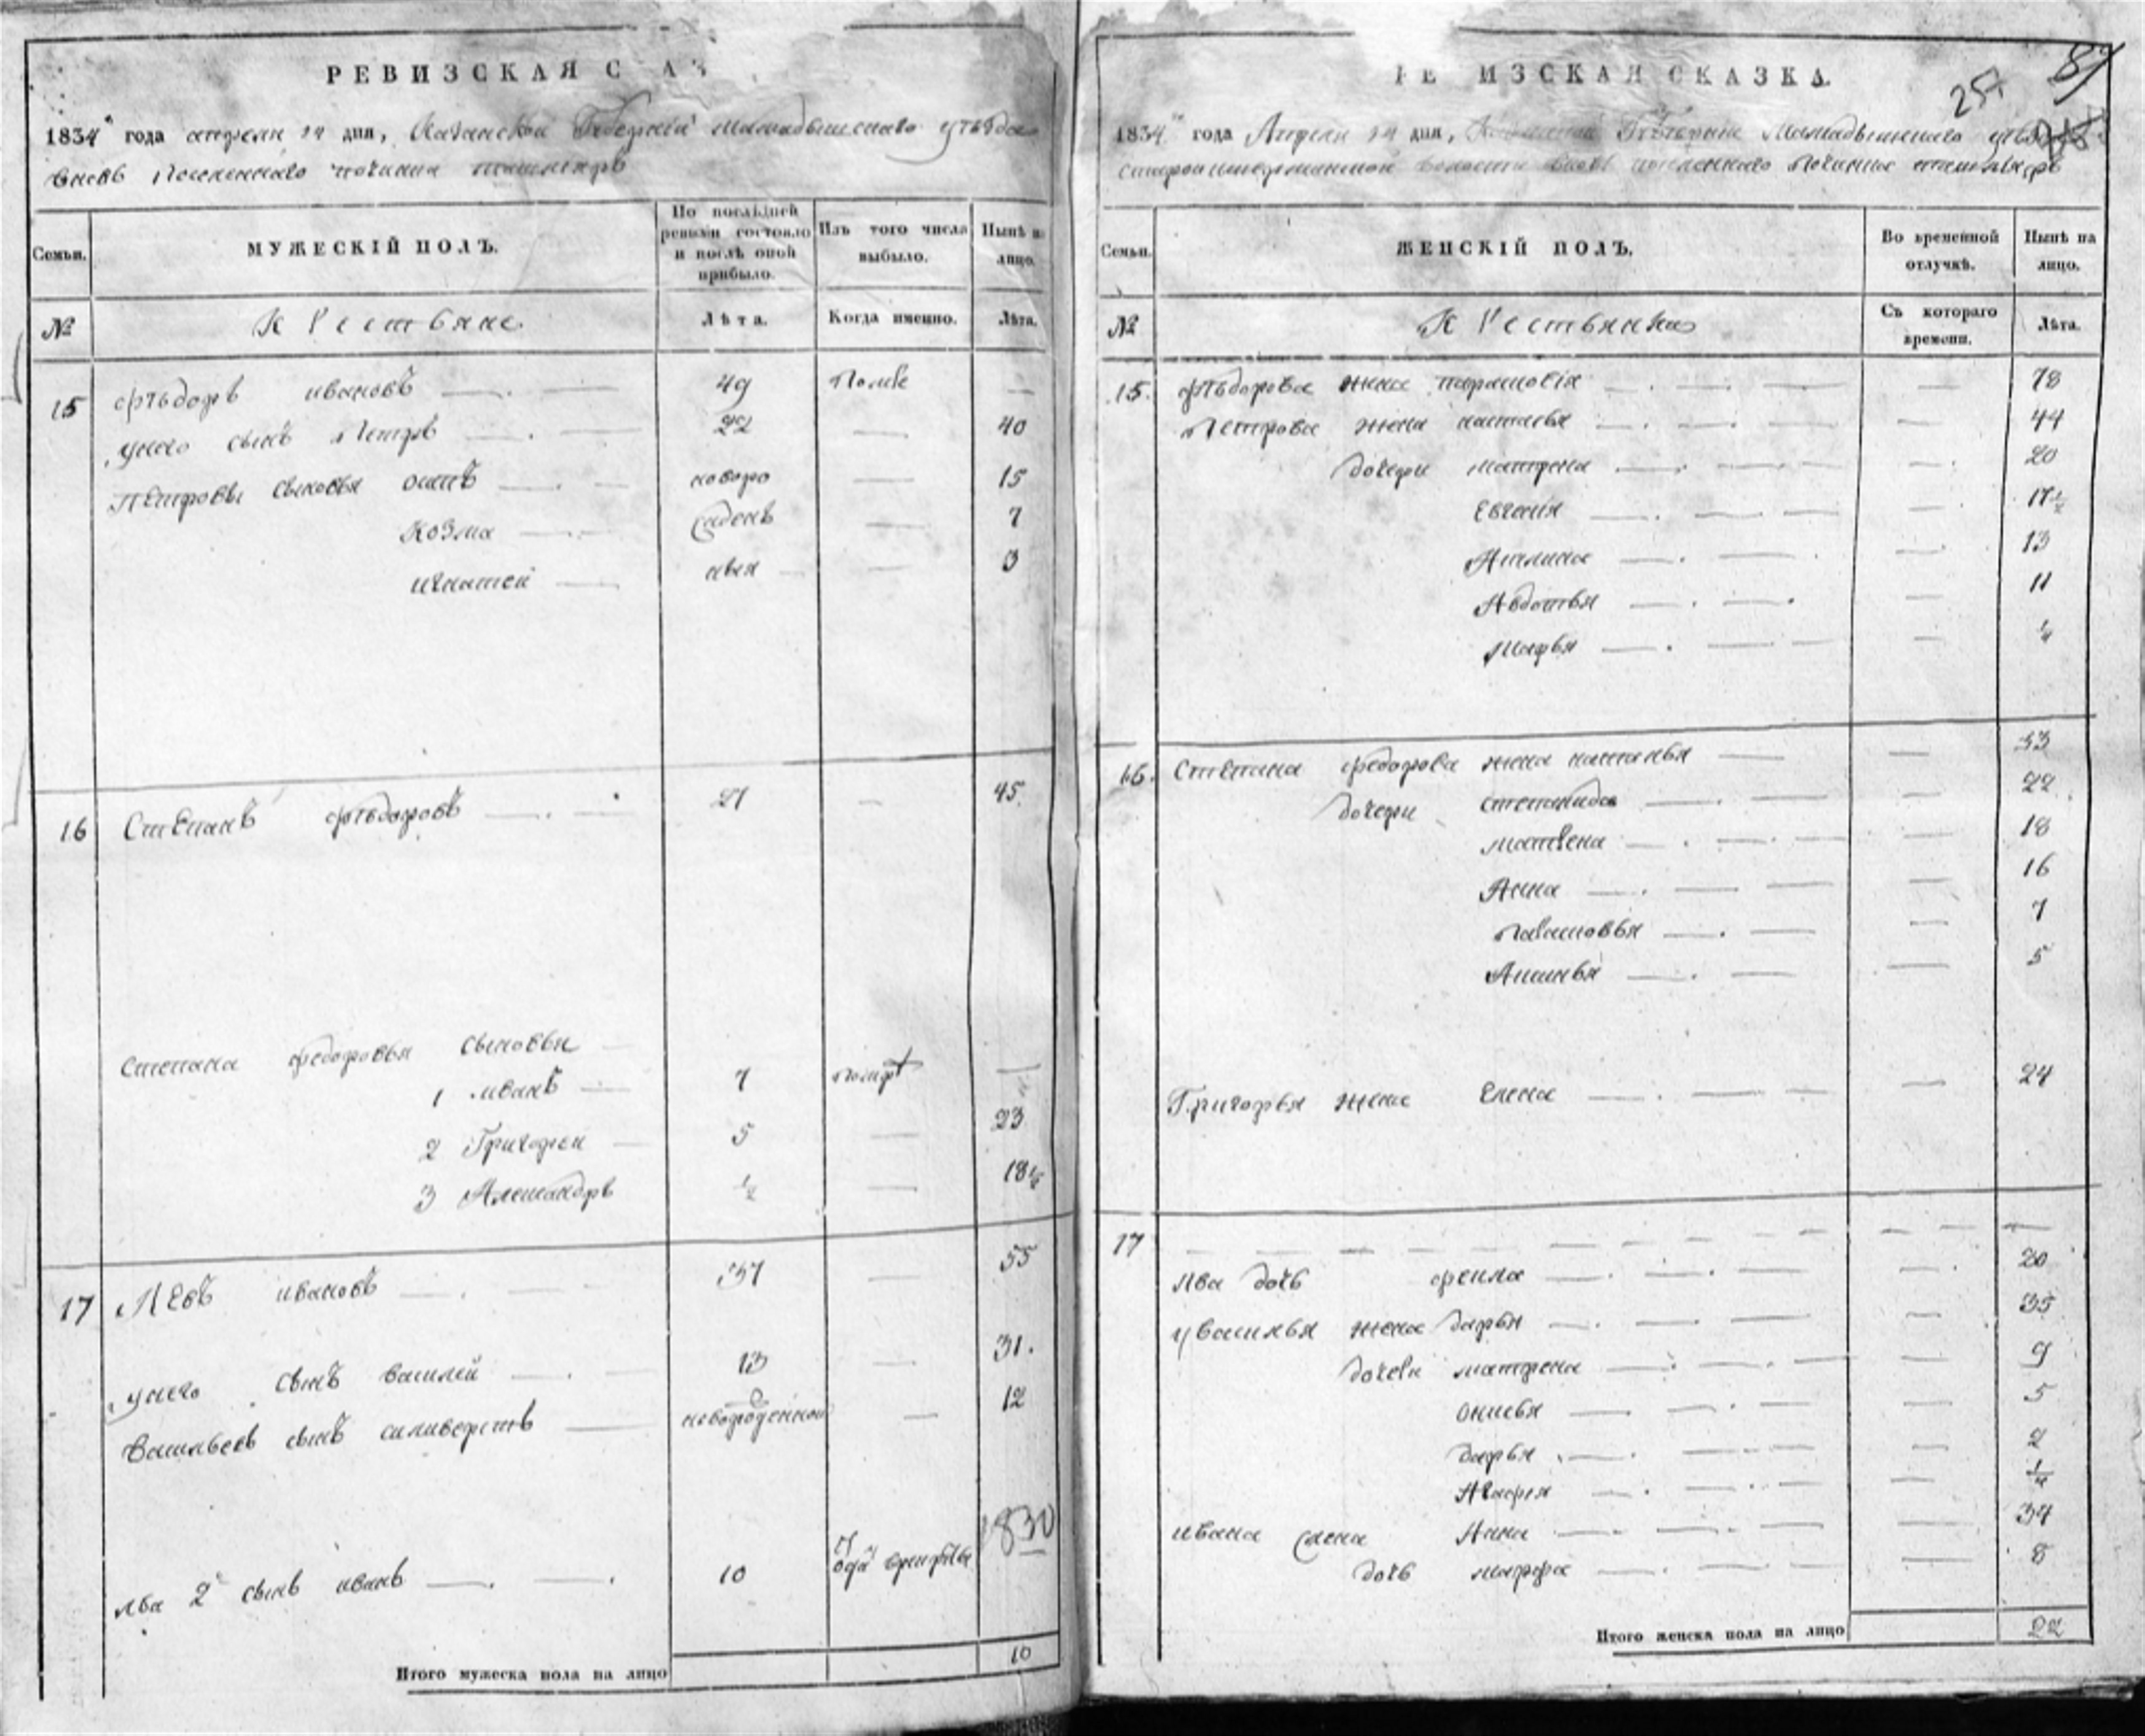 РЕВИЗСКАЯ С АЗ
1834 года апреля дня, Казанской Губернии мамадышскаго уѣзда
вновь Поселеннаго починка
Семьи.
МУЖЕСКІЙ ПОЛЪ.
По послѣдней ревизіи состояло и послѣ оной прибыло.
Изъ того числа выбыло.
Нынѣ на лицо.
№
Крестьяне
Лѣта.
Когда именно.
Лѣта.
15 Фѣдоръ ивановъ 49 —
унего сынъ Петръ 22 — 40
Петровы сыновья осипъ новоро — 15
Козма жденъ — 7
игнатей ныя — 3
16 Степанъ Фѣдоровъ 21 — 45
Степана федоровыя сыновьи
1 иванъ 7 помръ —
2 Григорей 5 — 23
3 Александръ ½ — 18½
17 Левъ ивановъ 37 — 55
унего сынъ василей 13 — 31.
Васильевъ сынъ силиверстъ новорожденной — 12
1830
лва 2 сынъ иванъ 10
Итого мужеска пола на лицо 10
25.
РЕ ИЗСКАЯ СКАЗКА.
1834 года Апреля дня, Казанской Губернии Мамадышскаго
волости вновь поселеннаго Починка
Семьи.
ЖЕНСКІЙ ПОЛЪ.
Во временной отлучкѣ.
Нынѣ на лицо.
№
Крестьянки
Съ котораго времени.
Лѣта.
15. Фѣдорова жена парасковія — 78
Петрова жена настасья — 44
дочери матрена — 20
Евгенія — 17½
Акилина — 13
Авдотья — 11
Марья — ¼
16. Степана федорова жена наталья — 53
дочери степанида — 22
матрена — 18
Анна — 16
— 7
Анинья — 5
Григорья жена Елена — 24
17 — — —
лва дочь — 20
увасилья жена дарья — 35
дочери матрена — 9
онисья — 5
дарья — 2
Агафія — ¼
ивана Анна — 34
дочь марфа — 8
Итого женска пола на лицо 22